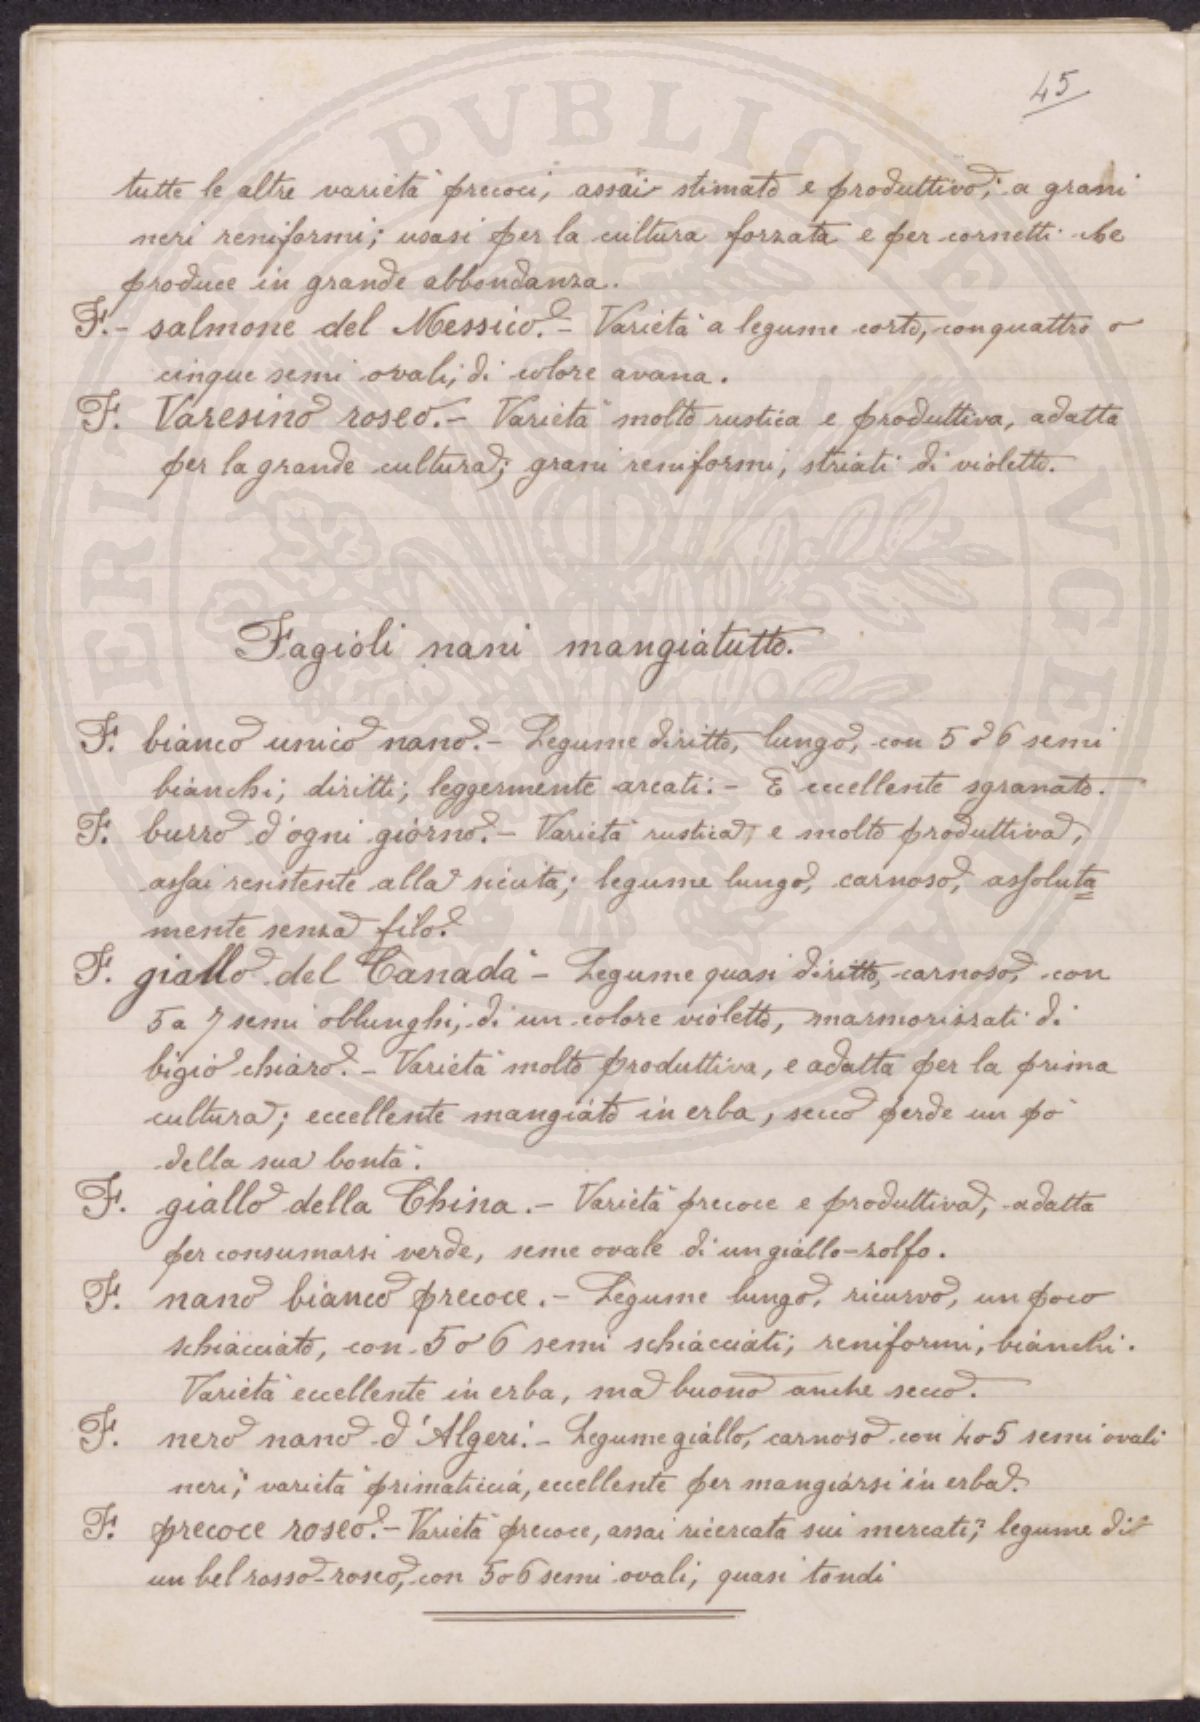 45
tutte le altre varietà precoci, assai stimato e produttivo; a grani
neri reniformi; usasi per la cultura forzata e per cornetti che
produce in grande abbondanza.
F.- salmone del Messico.- Varietà a legume corto, con quattro o
cinque semi ovali, di colore avana.
F. Varesino roseo.- Varietà molto rustica e produttiva, adatta
per la grande cultura; grani reniformi, striati di violetto.
Fagioli nani mangiatutto.
F. bianco unico nano.- Legume diritto, lungo, con 5 o 6 semi
bianchi, diritti, leggermente arcati.- È eccellente sgranato.
F. burro d'ogni giorno.- Varietà rustica, e molto produttiva,
assai resistente alla sicità; legume lungo, carnoso, assoluta
mente senza filo.
F. giallo del Canadà - Legume quasi diritto, carnoso, con
5 a 7 semi oblunghi, di un colore violetto, marmorizzati di
bigio chiaro.- Varietà molto produttiva, e adatta per la prima
cultura; eccellente mangiato in erba, secco perde un pò
della sua bontà.
F. giallo della China.- Varietà precoce e produttiva, adatta
per consumarsi verde, seme ovale di un giallo-zolfo.
F. nano bianco precoce.- Legume lungo, ricurvo, un poco
schiacciato, con 5 o 6 semi schiacciati, reniformi, bianchi.
Varietà eccellente in erba, ma buono anche secco.
F. nero nano d'Algeri.- Legume giallo, carnoso con 4 o 5 semi ovali
neri; varietà primaticcia, eccellente per mangiarsi in erba.
F. precoce roseo.- Varietà precoce, assai ricercata sui mercati; legume di
un bel rosso-roseo, con 5 o 6 semi ovali, quasi tondi